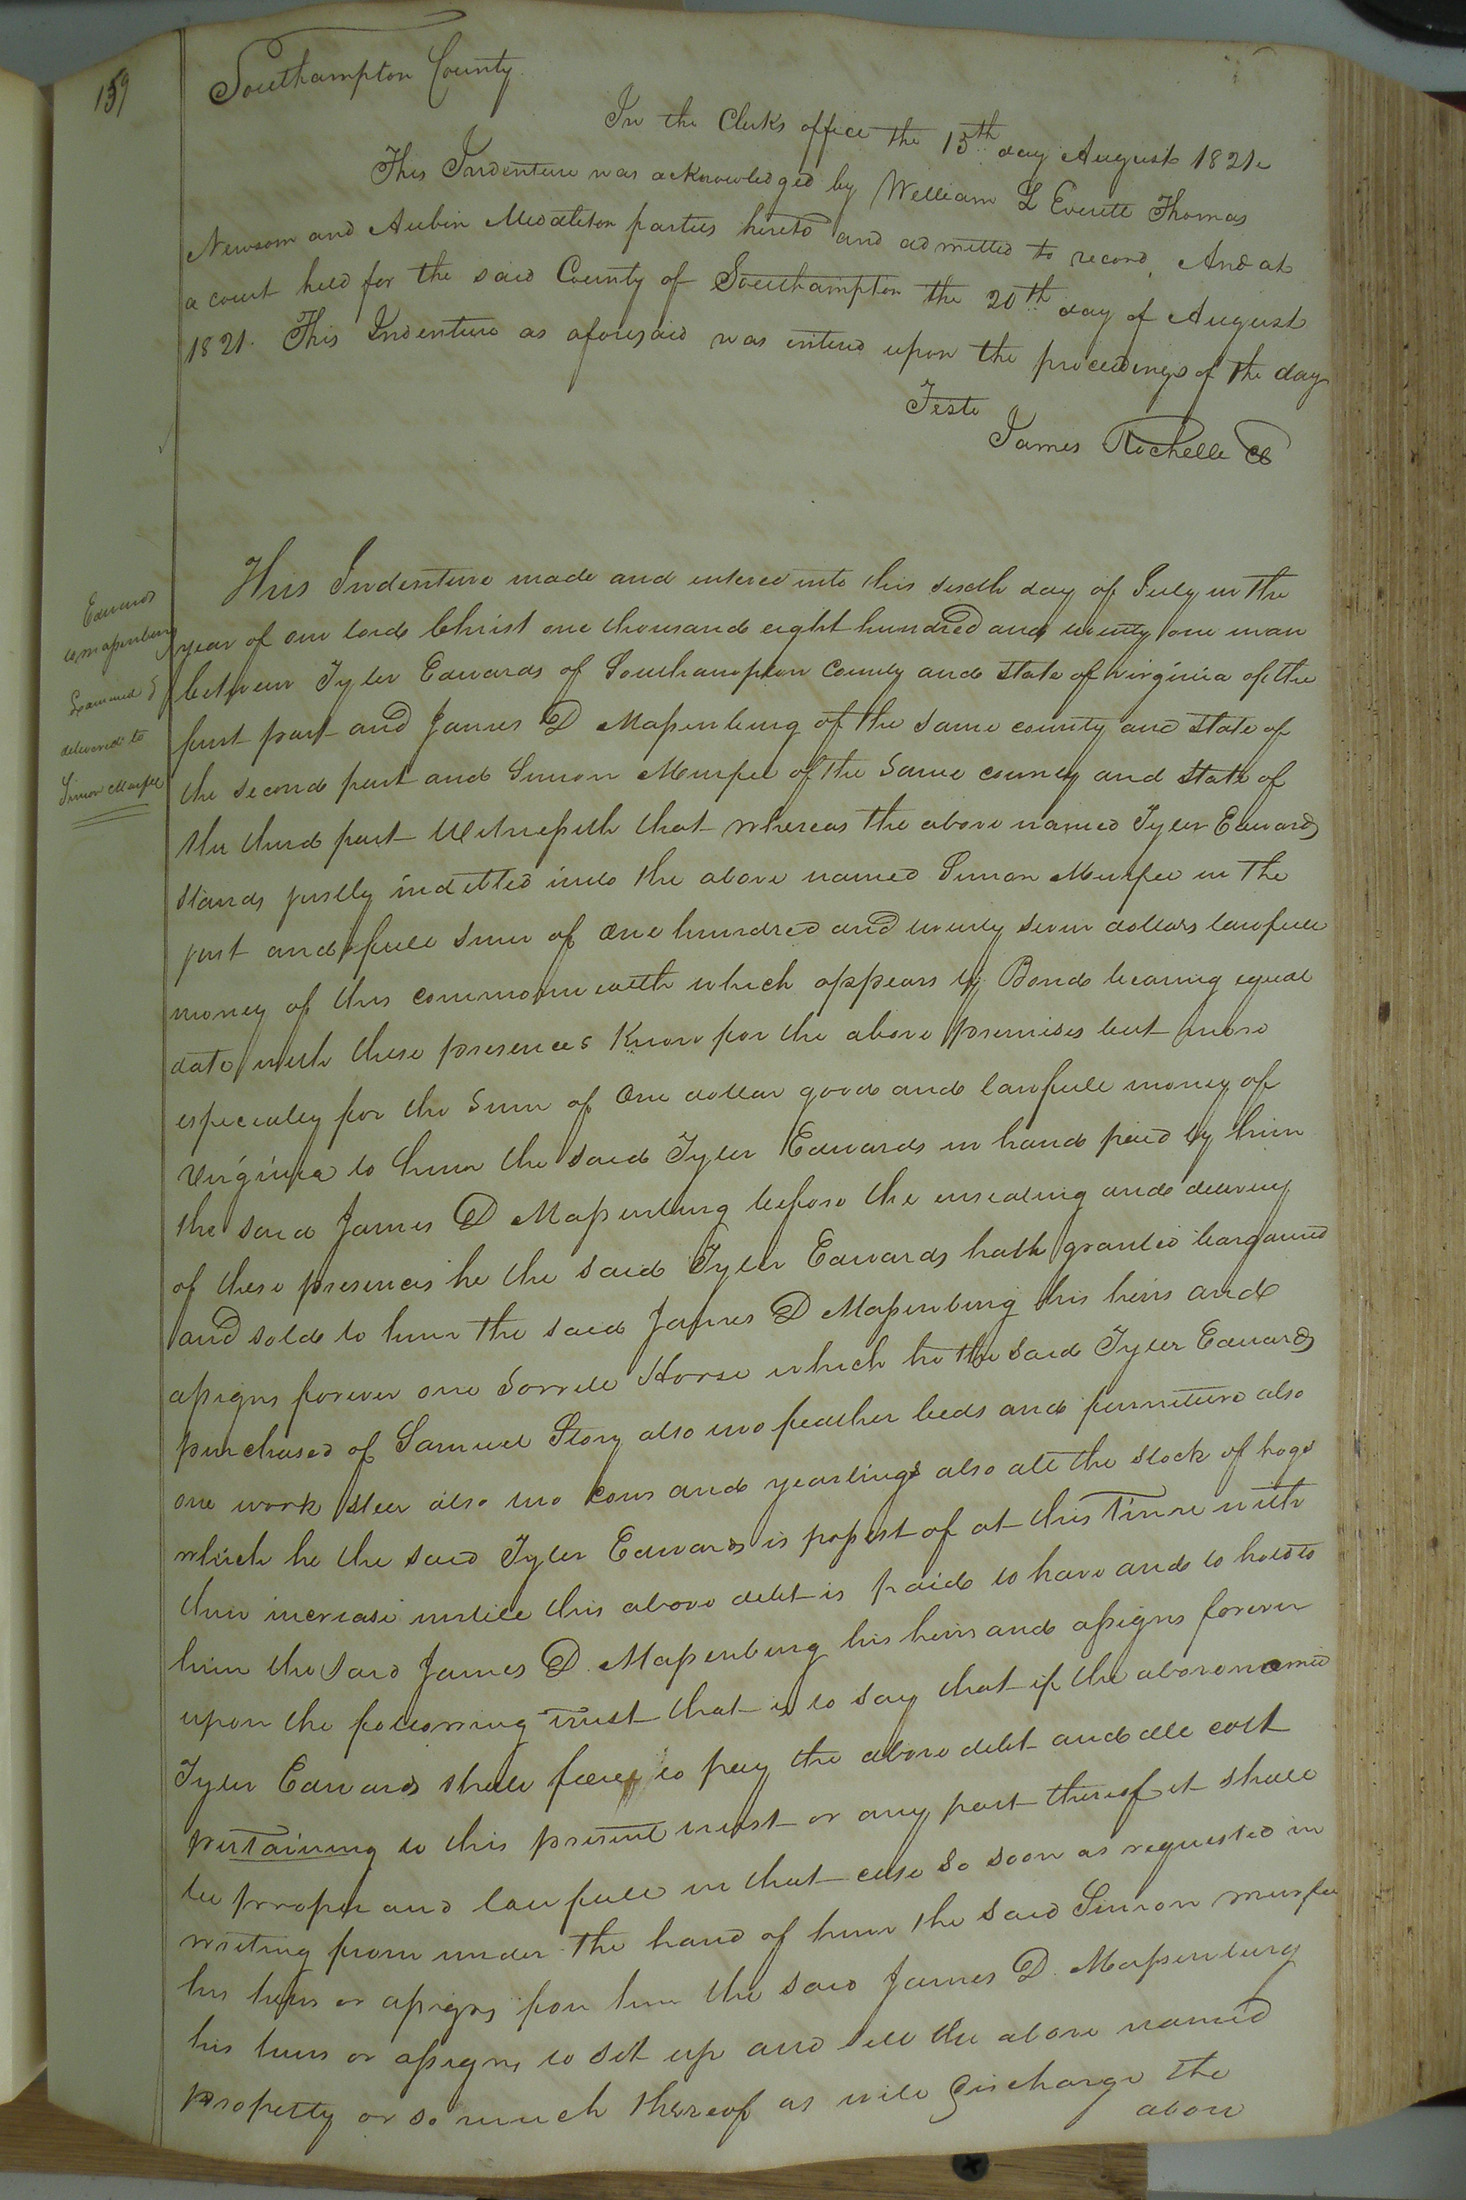 159
Southampton County
In the Clerks office the 15th day August 1821
This Indenture was acknowledged by William L Everitt Thomas
Newsom and Aubin Middleton parties hereto and admitted to record, And at
a court held for the said County of Southampton the 20th day of August
1821. This Indenture as aforesaid was entered upon the proceedings of the day
Teste
James Rochelle CC
Edwards
to Massenburg
Examined &
delivered to
Simon Murfee
This Indenture made and entered into this sixth day of July in the
year of our lord Christ one thousand eight hundred and twenty one
between Tyler Edwards of Southampton County and State of virginia of the
first part and James D Massenburg of the same county and State of
the second part and Simon Murfee of the same county and State of
the third part Witnesseth that whereas the above named Tyler Edwards
Stands justly indetted unto the above named Simon Murfee in the
just and full sum of one hundred and twenty seven dollars lawfull
money of this commonwealth which appears by Bond bearing equal
date with these presences Know for the above premises but more
especialey for the sum of One dollar good and lawfull money of
Virginia to him the said Tyler Edwards in hand paid by him
the said James D Massenburg before the ensealing and delivery
of these presences he the said Tyler Edwards hath granted bargained
and sold to him the said James D Massenburg his heirs and
assigns forever one Sorrell Horse which he the said Tyler Edwards
purchased of Samuel Story also two feather beds and furniture also
one work steer also two cows and yearlings also all the stock of hogs
which he the said Tyler Edwards is possest of at this time with
their increase untill this above debt is paid to have and to hold to
him the said James D. Massenburg his heirs and assigns forever
upon the following trust that is to say that if the above named
Tyler Edwards shall to pay the above debt and all cost
pertaining to this present trust or any part thereof it shall
be propper and lawfull in that case so soon as requested in
writing from under the hand of him the said Simon murfee
his heirs or assigns for him the said James D. Massenburg
his heirs or assigns to set up and sell the above named
property or so much thereof as will discharge the
above